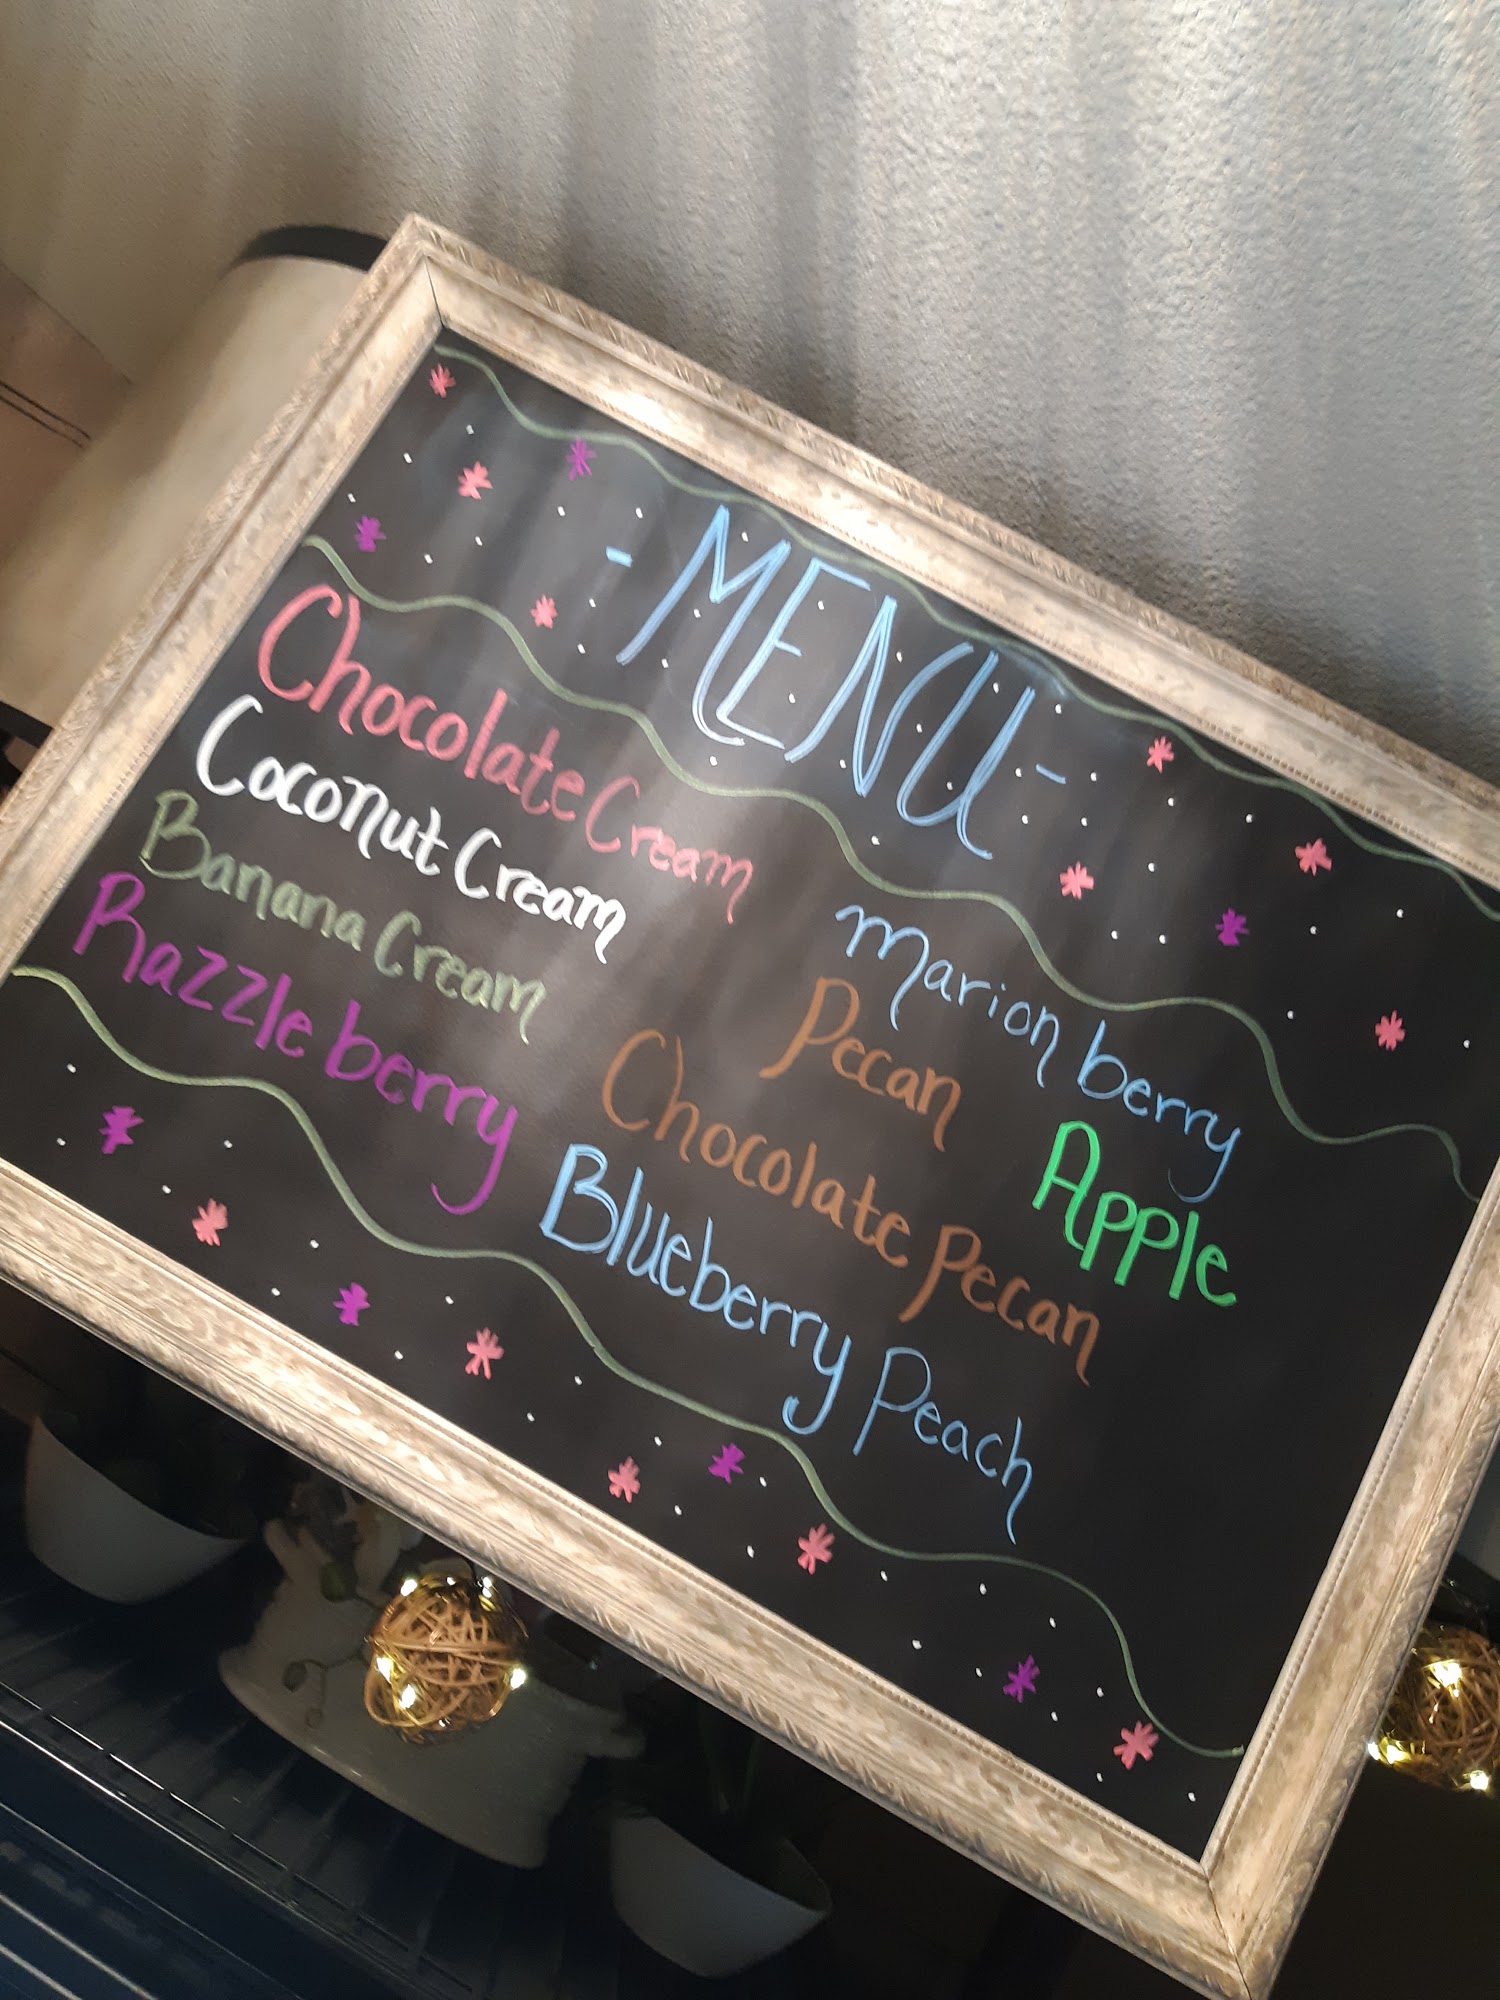 -MENU-
Chocolate Cream
Coconut Cream
Banana Cream
Razzleberry
Marion berry
Pecan
Apple
Chocolate Pecan
Blueberry Peach